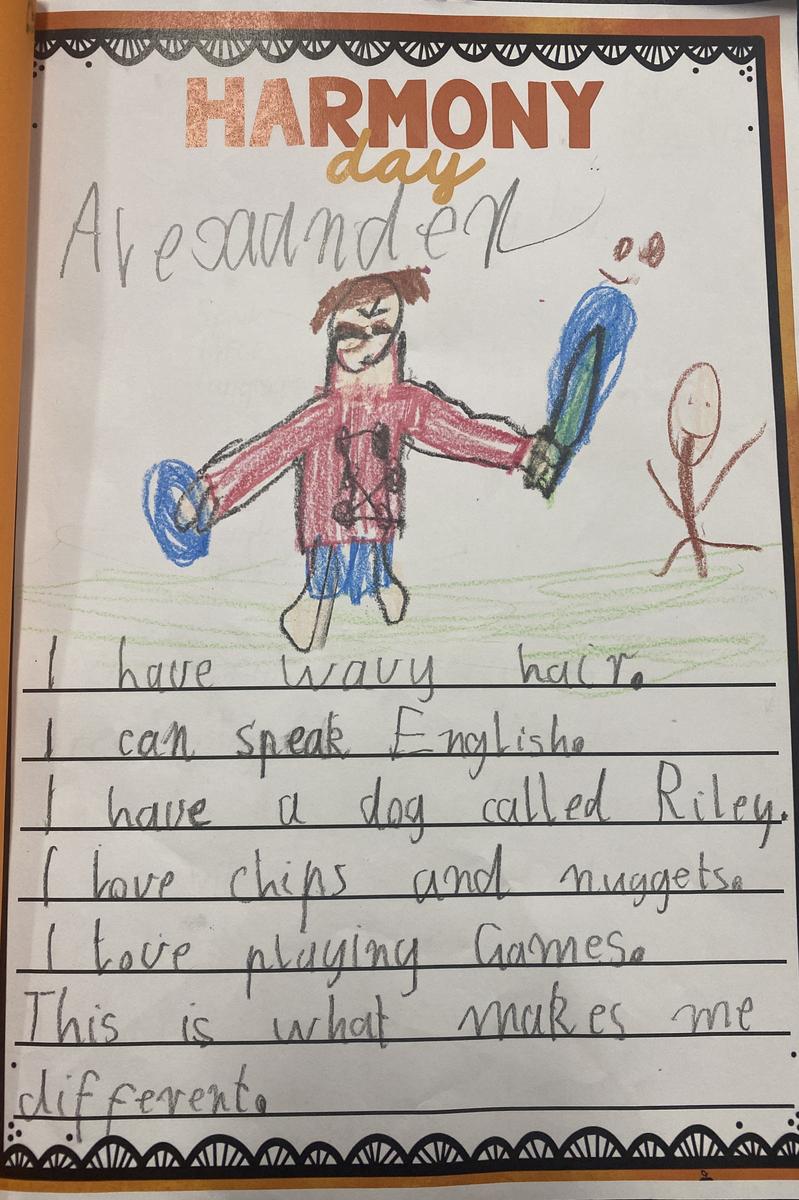 HARMONY
day
Alexaander
I have wavy hair.
I can speak English.
I have a dog called Riley.
I love chips and nuggets.
I love playing Games.
This is what makes me
different.